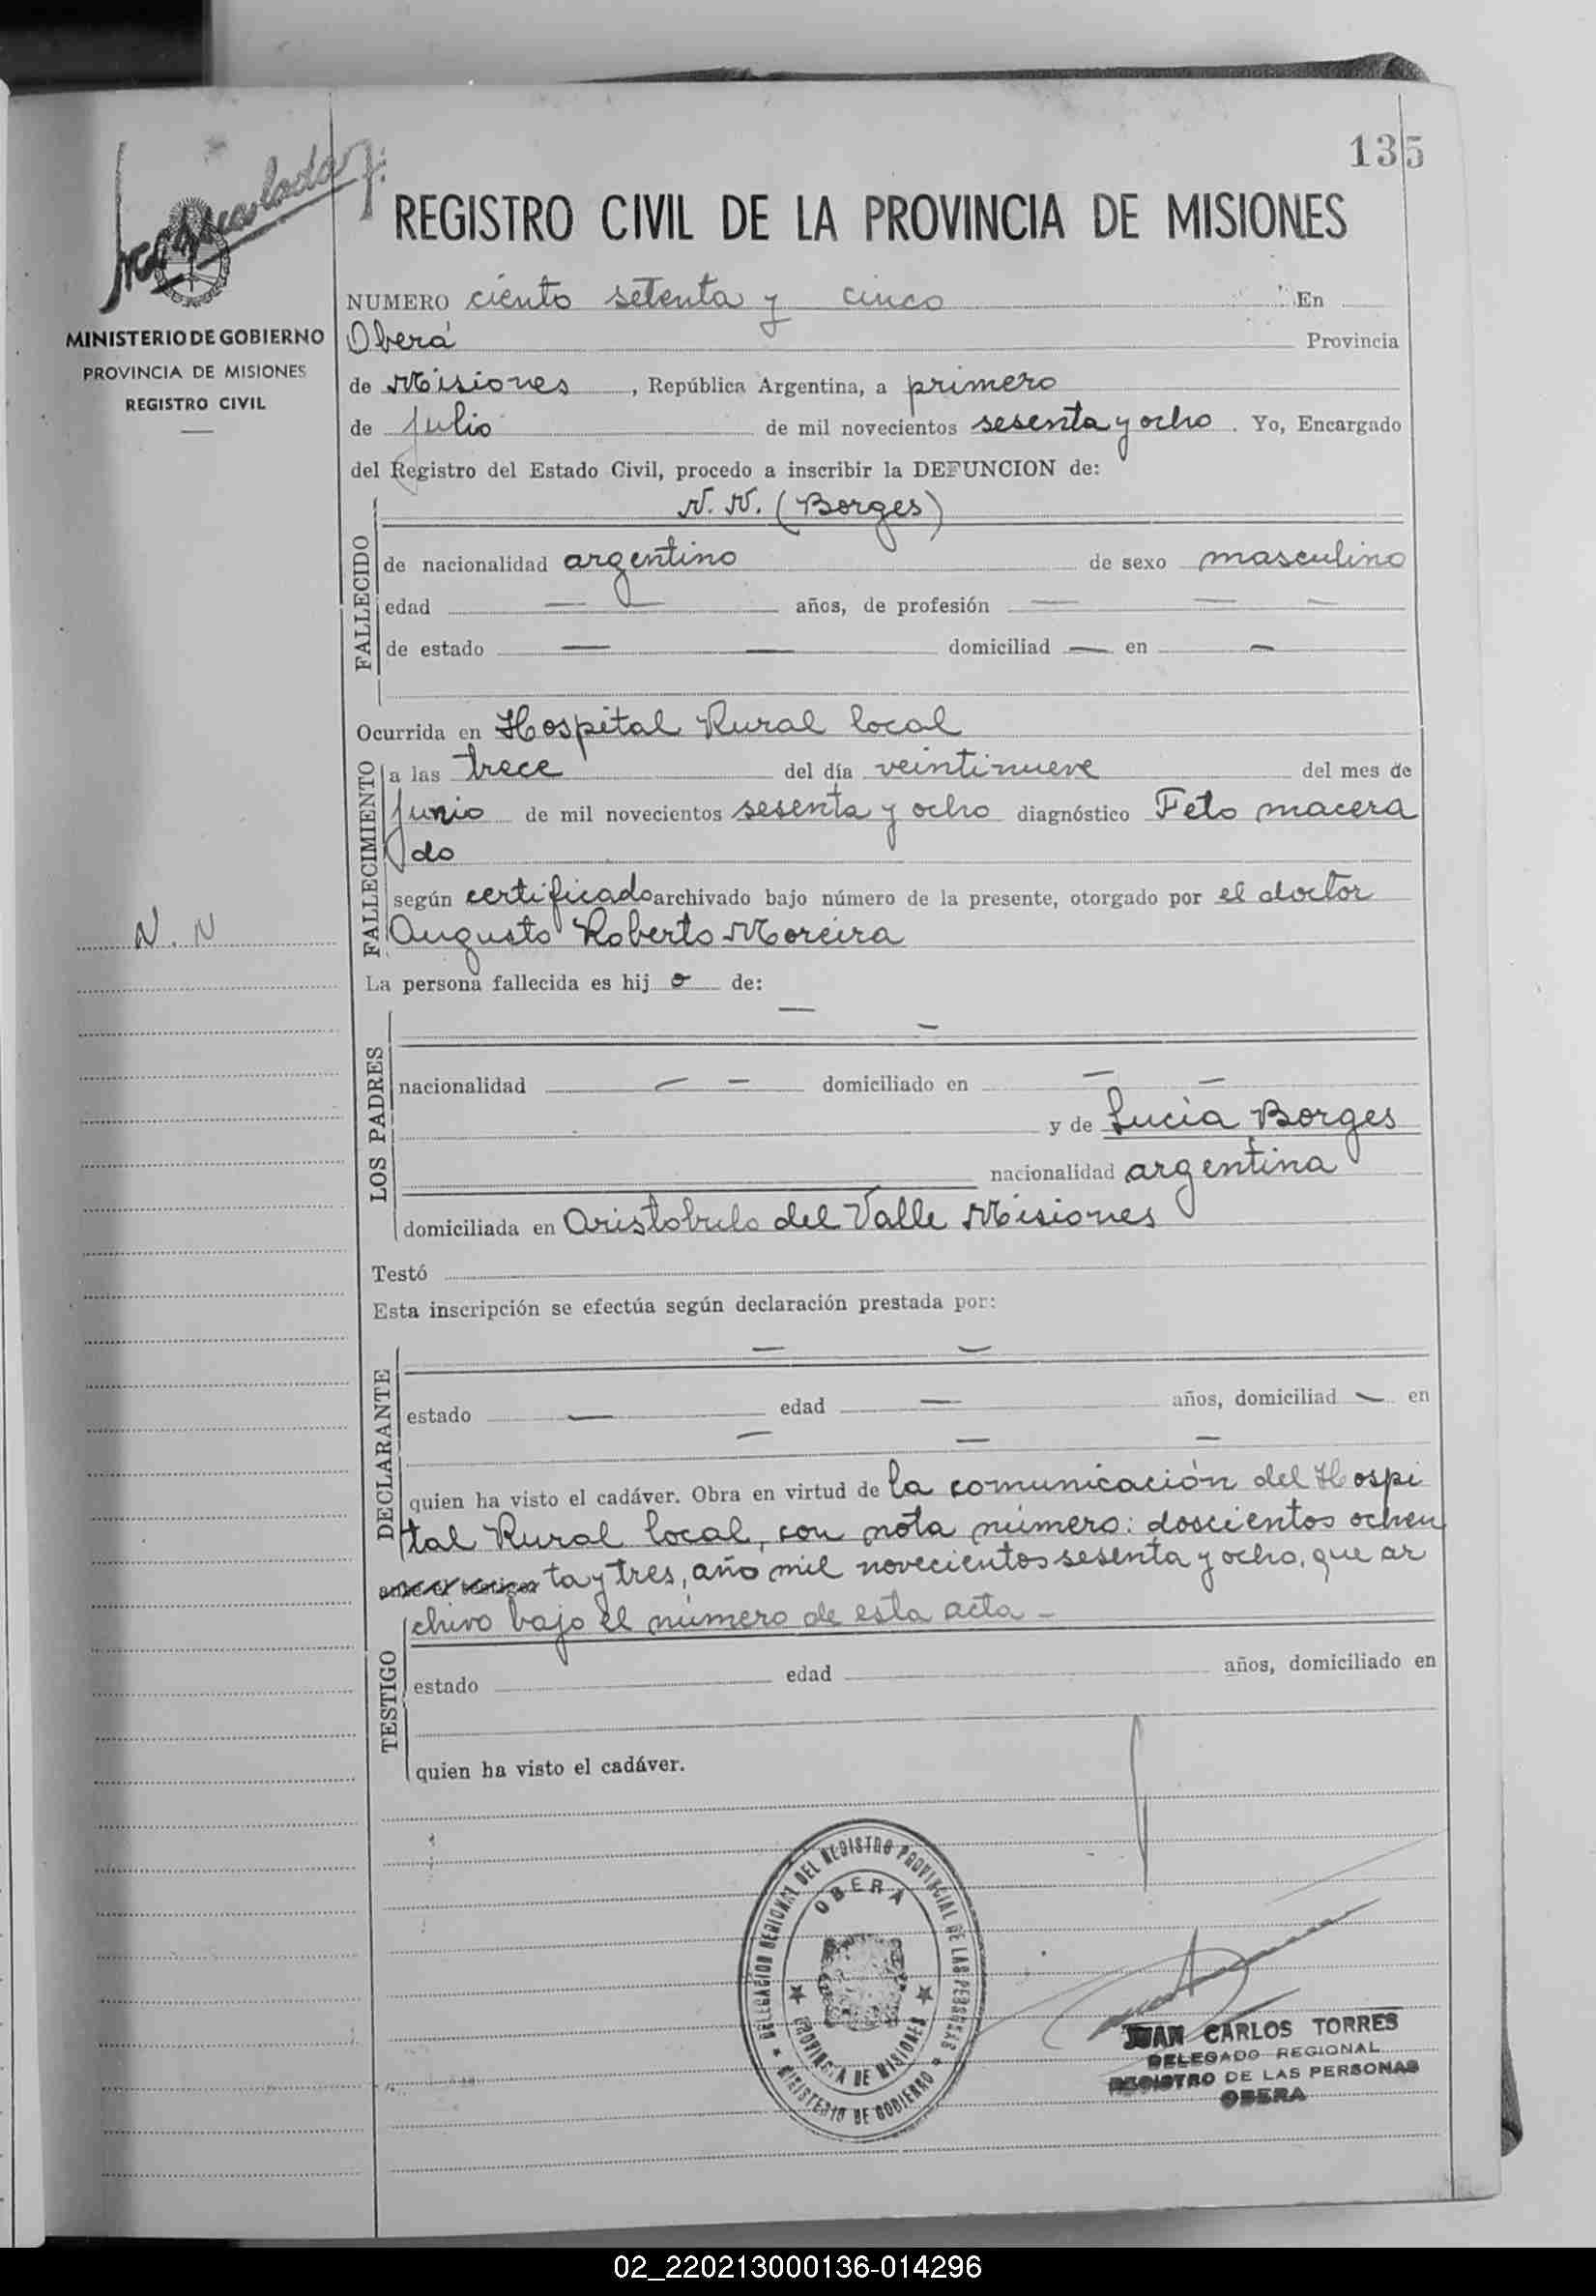 135
REGISTRO CIVIL DE LA PROVINCIA DE MISIONES
MINISTERIO DE GOBIERNO
PROVINCIA DE MISIONES
REGISTRO CIVIL
NUMERO ciento setenta y cinco En
Oberá Provincia
de Misiones, República Argentina, a primero
de Julio de mil novecientos sesenta y ocho. Yo, Encargado
del Registro del Estado Civil, procedo a inscribir la DEFUNCION de:
N. N. (Borges)
FALLECIDO
de nacionalidad argentino de sexo masculino
edad — — años, de profesión — — —
de estado — — domiciliad — en —
Ocurrida en Hospital Rural local
FALLECIMIENTO
a las trece del día veintinueve del mes de
Junio de mil novecientos sesenta y ocho diagnóstico Feto macera
do
según certificado archivado bajo número de la presente, otorgado por el doctor
Augusto Roberto Moreira
N. N
La persona fallecida es hijo de:
— —
LOS PADRES
nacionalidad — — domiciliado en — —
y de Lucia Borges
nacionalidad argentina
domiciliada en Aristobulo del Valle Misiones
Testó
Esta inscripción se efectúa según declaración prestada por:
— —
DECLARANTE
estado — edad — años, domiciliad — en
— — —
quien ha visto el cadáver. Obra en virtud de la comunicación del Hospi
tal Rural local, con nota número: doscientos ochen
ta y tres, año mil novecientos sesenta y ocho, que ar
chivo bajo el número de esta acta -
TESTIGO
estado edad años, domiciliado en
quien ha visto el cadáver.
DELEGACION REGIONAL DEL REGISTRO PROVINCIAL DE LAS PERSONAS
OBERA
PROVINCIA DE MISIONES
MINISTERIO DE GOBIERNO
JUAN CARLOS TORRES
DELEGADO REGIONAL
REGISTRO DE LAS PERSONAS
OBERA
02_220213000136-014296